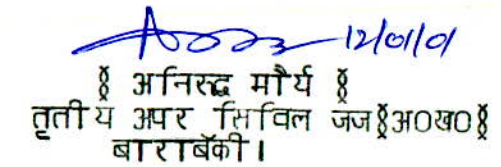 12/01/01
§ अनिरुद्ध मौर्य §
तृतीय अपर सिविल जज§अ०ख०§
बाराबॅकी।